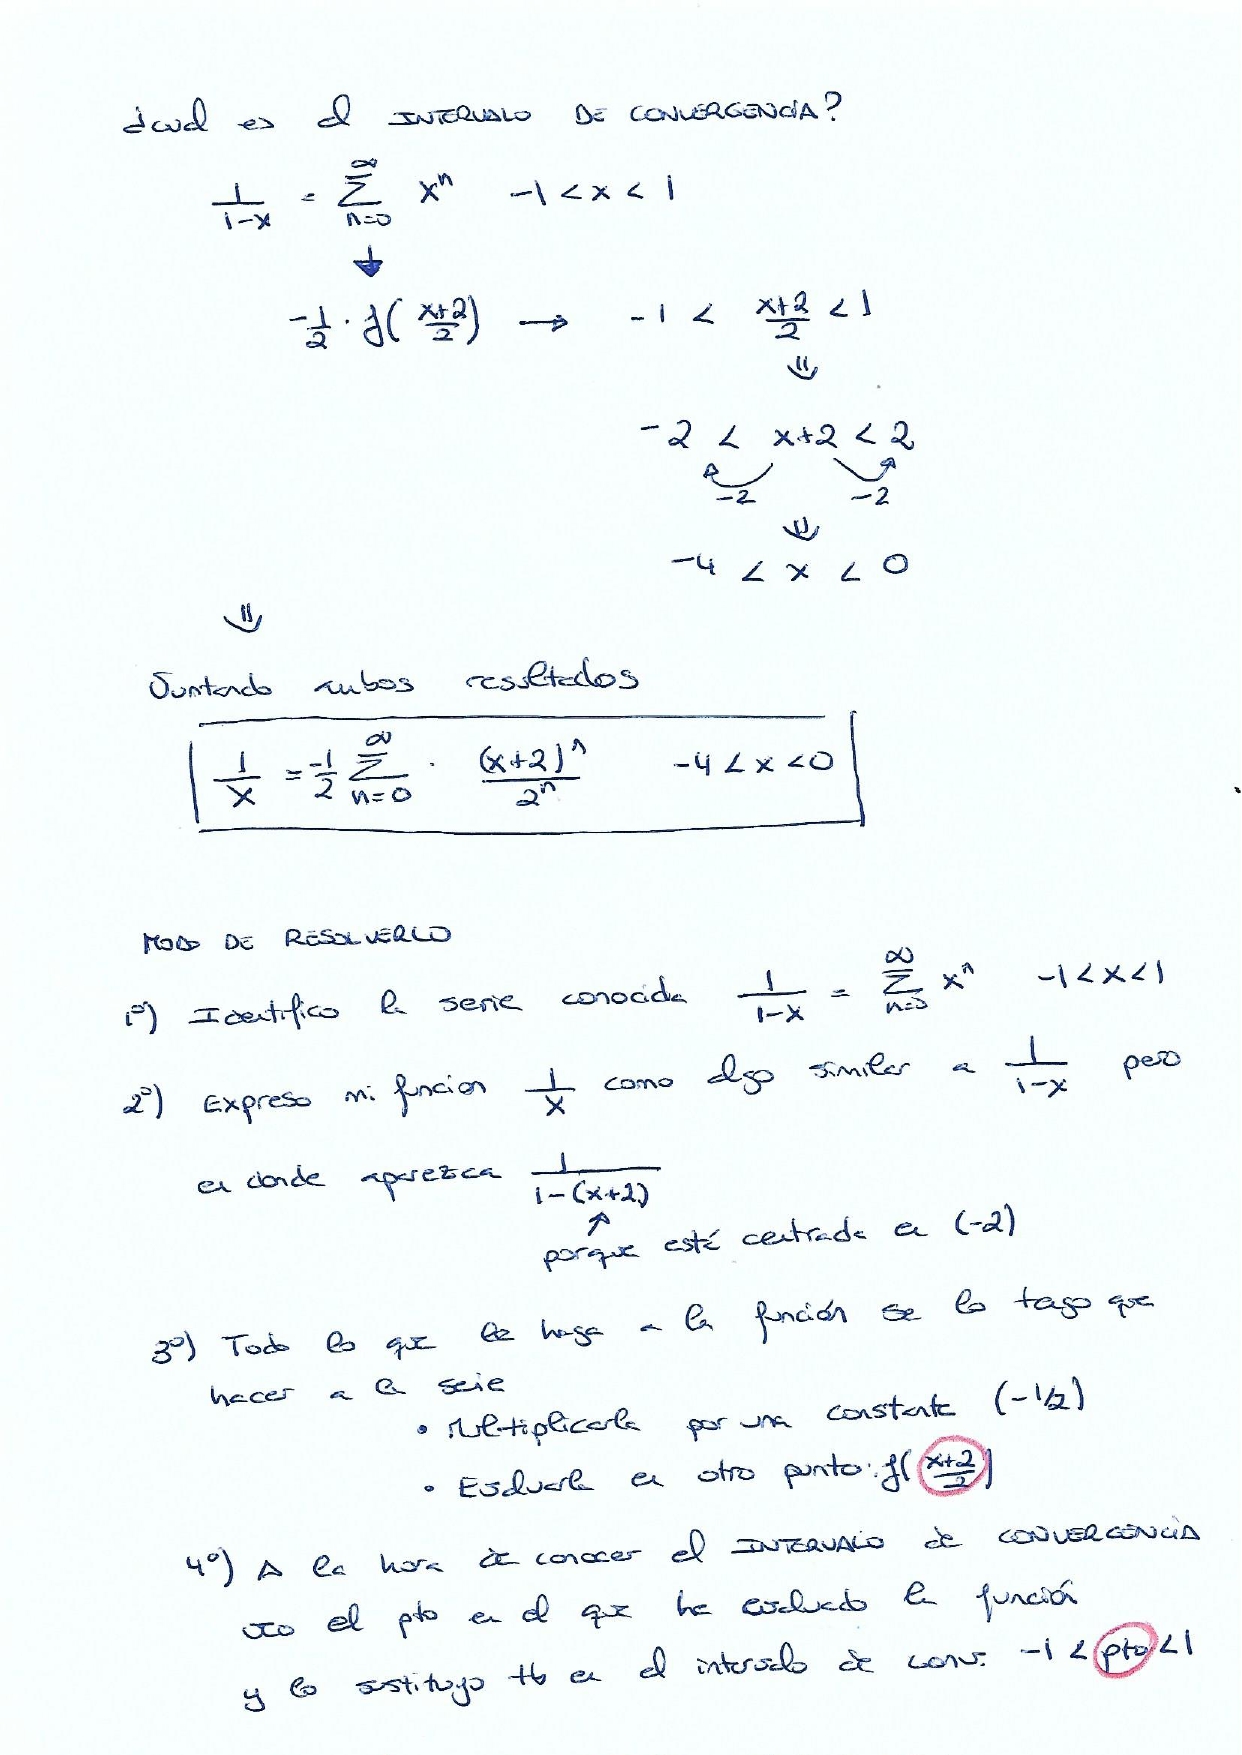 ¿cual es el INTERVALO DE CONVERGENCIA?
1/(1-x) = ∑_{n=0}^{∞} x^n   -1 < x < 1
↓
-1/2 · f((x+2)/2) → -1 < (x+2)/2 < 1
⇓
-2 < x+2 < 2
-2 -2
⇓
-4 < x < 0
⇓
Juntando ambos resultados
1/x = -1/2 ∑_{n=0}^{∞} · (x+2)^n/2^n   -4 < x < 0
MODO DE RESOLVERLO
1º) Identifico la serie conocida 1/(1-x) = ∑_{n=0}^{∞} x^n   -1 < x < 1
2º) Expreso mi funcion 1/x como algo similar a 1/(1-x) pero
en donde aparezca 1/(1-(x+2))
↑
porque esté centrada en (-2)
3º) Todo lo que le haga a la función se lo tengo que
hacer a la serie
• Multiplicarla por una constante (-1/2)
• Evaluarla en otro punto: f((x+2)/2)
4º) A la hora de conocer el INTERVALO de CONVERGENCIA
uso el pto en el que he evaluado la función
y lo sustituyo tb en el intervalo de conv. -1 < pto < 1